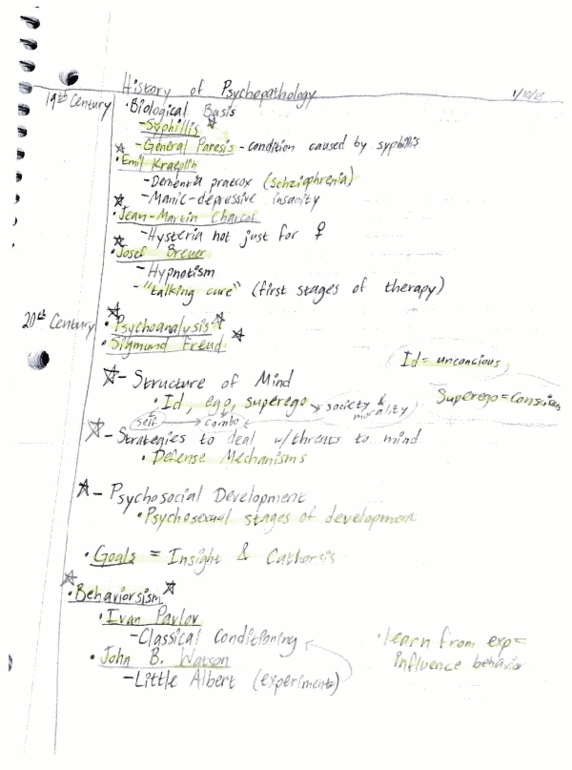 History of Psychopathology
19th Century
• Biological Basis
- Syphillis
- General Paresis - condition caused by syphillis
• Emil Kraeplin
- Dementia praecox (schziophrenia)
- Manic-depressive insanity
• Jean-Martin Charcot
- Hysteria not just for ♀
• Josef Breuer
- Hypnotism
- "talking cure" (first stages of therapy)
20th Century
• Psychoanalysis
• Sigmund Freud
Id = unconcious
- Structure of Mind
Superego = Conscious
• Id, ego, superego → society & morality
self combo
- Strategies to deal w/threats to mind
• Defense Mechanisms
- Psychosocial Development
• Psychosexual stages of development
• Goals = Insight & Catharsis
• Behaviorsism
• Ivan Pavlov
- Classical Conditioning
• learn from exp =
influence behavior
• John B. Watson
- Little Albert (experiment)